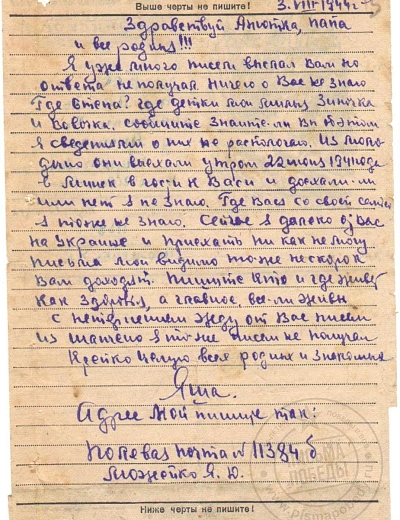 Выше черты не пишите!
3.VIII 1944 г
Здравствуй Анютка, папа
и все родные!!!
Я уже много писем выслал Вам но
ответа не получал ничего о Вас не знаю
Где Степа? где детки мои милые Зиночка
и Вовочка. сообщите знаете-ли Вы об этом
я сведениями о них не располагаю. Из
они выехали утром 22 июня 1941 года
в Минск в гости к Васи и доехали-ли
или нет я не знаю. Где Вася со своей семьей
я тоже не знаю. Сейчас я далеко от Вас
на Украине и приехать ни как не могу
письма мои видимо тоже не скоро к
Вам доходят. Пишите кто и где живёт
как здоровья, а главное, все-ли живы
с нетерпением жду от Вас писем
Из я тоже писем не получал
Крепко целую всех родных и знакомых
Яша.
Адрес мой пишите так:
Полевая почта N 11384 б
Я. Ю.
ПИСЬМА
ПОБЕДЫ
Ниже черты не пишите!